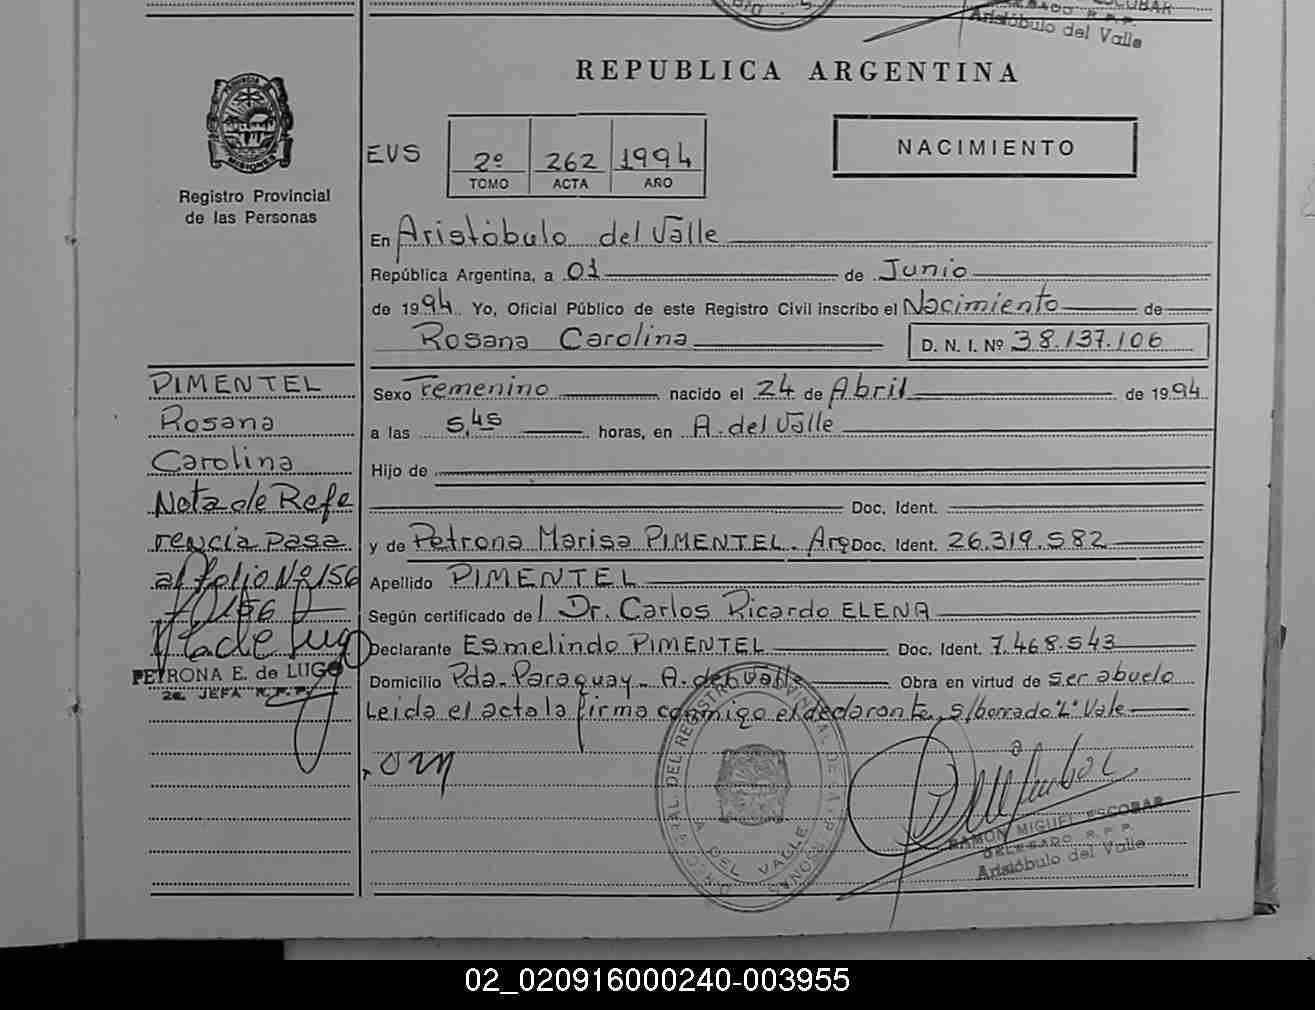 ESCOBAR
DELEGADO R.P.P.
Aristóbulo del Valle
REPUBLICA ARGENTINA
PROVINCIA DE
MISIONES
Registro Provincial
de las Personas
EVS
2º 262 1994
TOMO ACTA AÑO
NACIMIENTO
En Aristóbulo del Valle
República Argentina, a 01 de Junio
de 1994 Yo, Oficial Público de este Registro Civil inscribo el Nacimiento de
Rosana Carolina D. N. I. Nº 38.137.106
Sexo Femenino nacido el 24 de Abril de 1994
a las 5,45 horas, en A. del Valle
Hijo de
Doc. Ident.
y de Petrona Marisa PIMENTEL. Arg Doc. Ident. 26.319.582
Apellido PIMENTEL
Según certificado del Dr. Carlos Ricardo ELENA
Declarante Esmelindo PIMENTEL Doc. Ident. 7.468.543
Domicilio Pda. Paraguay - A. del Valle Obra en virtud de ser abuelo
Leida el acta la firma conmigo el declarante, s/borrado "L" Vale
PIMENTEL
Rosana
Carolina
Nota de Refe
rencia pasa
al folio Nº 156
PETRONA E. de LUGO
2a. JEFA R.P.P.
DIREC. GRAL. DEL REGISTRO PROVINCIAL DE LAS PERSONAS
A. DEL VALLE
RAMON MIGUEL ESCOBAR
DELEGADO R.P.P.
Aristóbulo del Valle
02_020916000240-003955